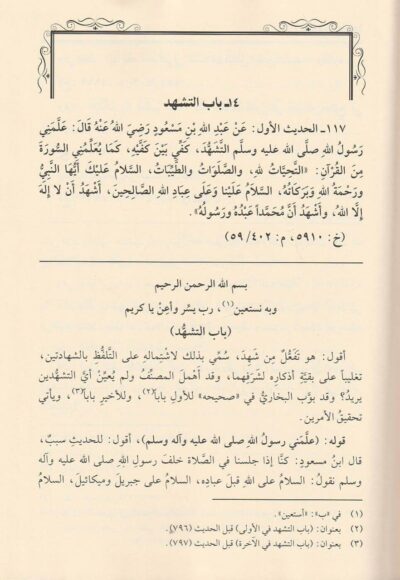 ١٤ـ باب التشهد
١١٧ـ الحديث الأول: عَنْ عَبْدِ اللهِ بْنِ مَسْعُودٍ رَضِيَ اللهُ عَنْهُ قَالَ: عَلَّمَنِي
رَسُولُ اللهِ صلَّى الله عليه وسلَّم التَّشَهُّدَ، كَفِّي بَيْنَ كَفَّيْهِ، كَمَا يُعَلِّمُنِي السُّورَةَ
مِنَ القُرْآنِ: «التَّحِيَّاتُ لِلهِ، والصَّلَوَاتُ والطَّيِّبَاتُ، السَّلامُ عَلَيْكَ أَيُّهَا النَّبِيُّ
ورَحْمَةُ اللهِ وَبَرَكَاتُهُ، السَّلاَمُ عَلَيْنَا وَعَلَى عِبَادِ اللهِ الصَّالِحِينَ، أَشْهَدُ أَنْ لا إِلَهَ
إِلَّا اللهُ، وأَشْهَدُ أَنَّ مُحَمَّداً عَبْدُهُ ورَسُولُهُ».
(خ: ٥٩١٠، م: ٤٠٢/ ٥٩)
بسم الله الرحمن الرحيم
وبه نستعين(١)، رب يسّر وأعِنْ يا كريم
(باب التشهُّد)
أقول: هو تَفَعُّلٌ مِن شَهِدَ، سُمِّي بذلك لاشْتِمالِه على التَّلفُّظِ بالشهادتين،
تغليباً على بقيَّةِ أذكارِه لشَرَفِهما، وقد أهْملَ المصنِّفُ ولم يُعيِّنْ أيَّ التشهُّدين
يريدُ؟ وقد بوَّب البخاريُّ في «صحيحه» للأولِ باباً(٢)، وللأخيرِ باباً(٣)، ويأتي
تحقيقُ الأمرين.
قوله: (علَّمني رسولُ اللهِ صلى الله عليه وآله وسلم)، أقول: للحديثِ سببٌ،
قال ابنُ مسعودٍ: كنَّا إذا جلسنا في الصَّلاة خلفَ رسولِ اللهِ صلى الله عليه وآله
وسلم نقولُ: السلامُ على اللهِ قبلَ عبادِه، السلامُ على جبريلَ وميكائيلَ، السلامُ
(١) في «ب»: «أستعين».
(٢) بعنوان: (باب التشهد في الأولى) قبل الحديث (٧٩٦).
(٣) بعنوان: (باب التشهد في الآخرة) قبل الحديث (٧٩٧).